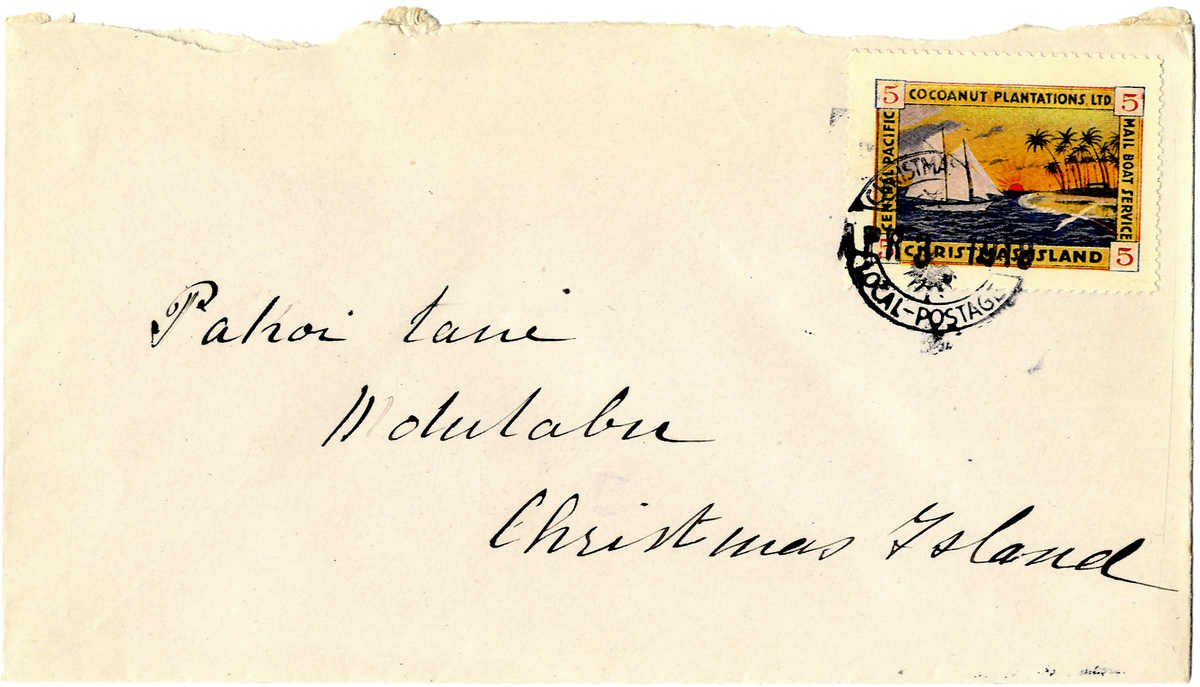 5 COCOANUT PLANTATIONS, LTD 5
CENTRAL PACIFIC
MAIL BOAT SERVICE
5 CHRISTMAS ISLAND 5
CHRISTMAS
APR 3
LOCAL-POSTAGE
Pakoi tane
Christmas Island